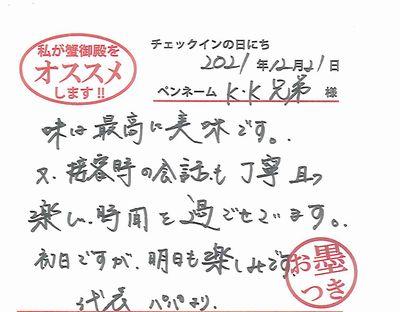 私が蟹御殿を
オススメ
します!!
チェックインの日にち
2021年12月21日
ペンネーム K・K兄弟 様
味は最高に美味です。
又、接客時の会話も丁寧且つ
楽しい時間を過ごせています。
初日ですが、明日も楽しみです。
代表 パパより、
お墨
つき